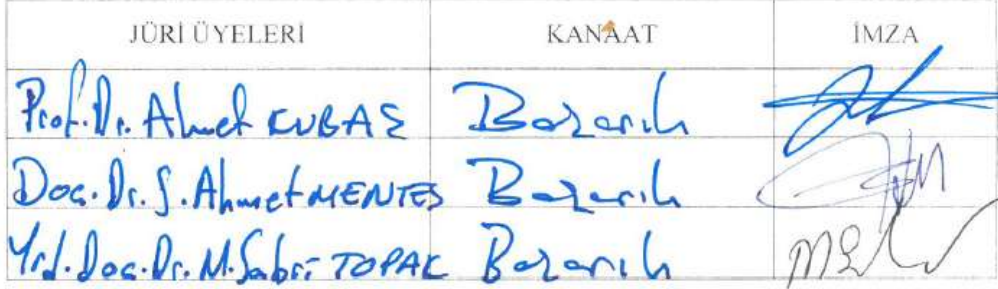 JÜRİ ÜYELERİ KANAAT İMZA
Prof. Dr. Ahmet KUBAŞ Başarılı
Doç. Dr. S. Ahmet MENTEŞ Başarılı
Yrd. Doç. Dr. M. Sabri TOPAK Başarılı